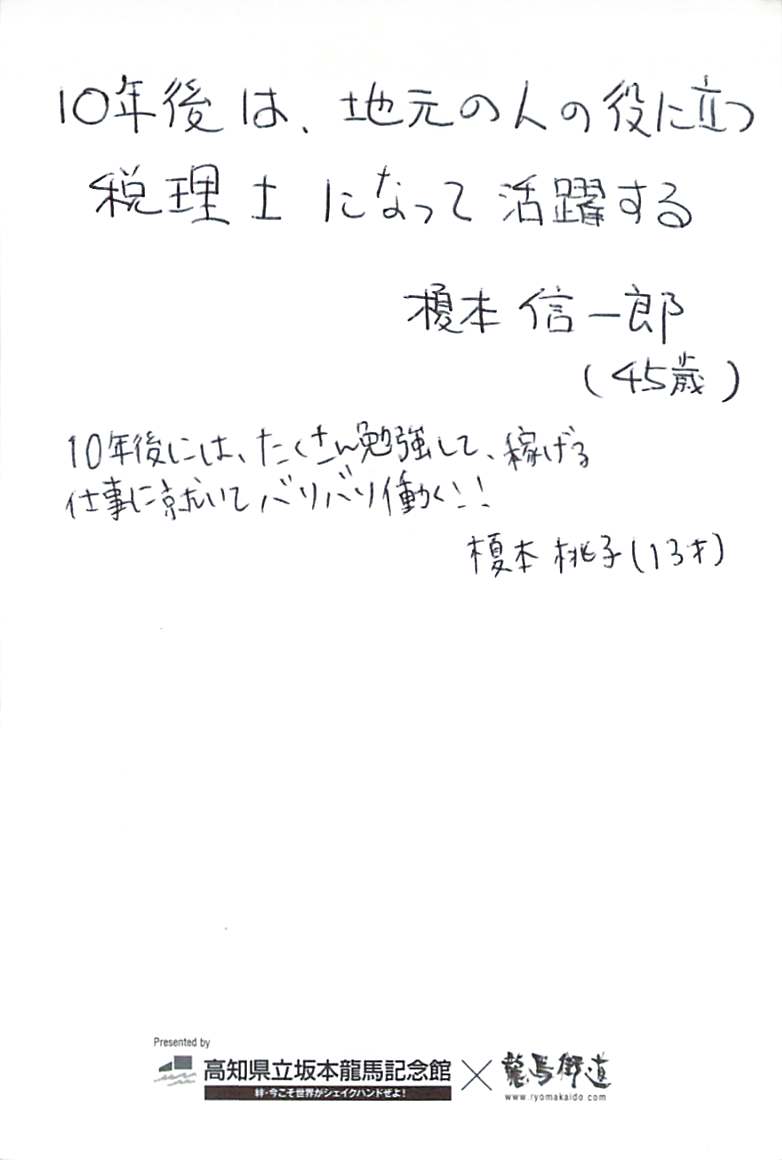 10年後は、地元の人の役に立つ
税理士になって活躍する
榎本信一郎
(45歳)
10年後には、たくさん勉強して、稼げる
仕事に就いてバリバリ働く!!
榎本桃子(13才)
Presented by
高知県立坂本龍馬記念館×龍馬街道
絆・今こそ世界がシェイクハンドぜよ!
www.ryomakaido.com